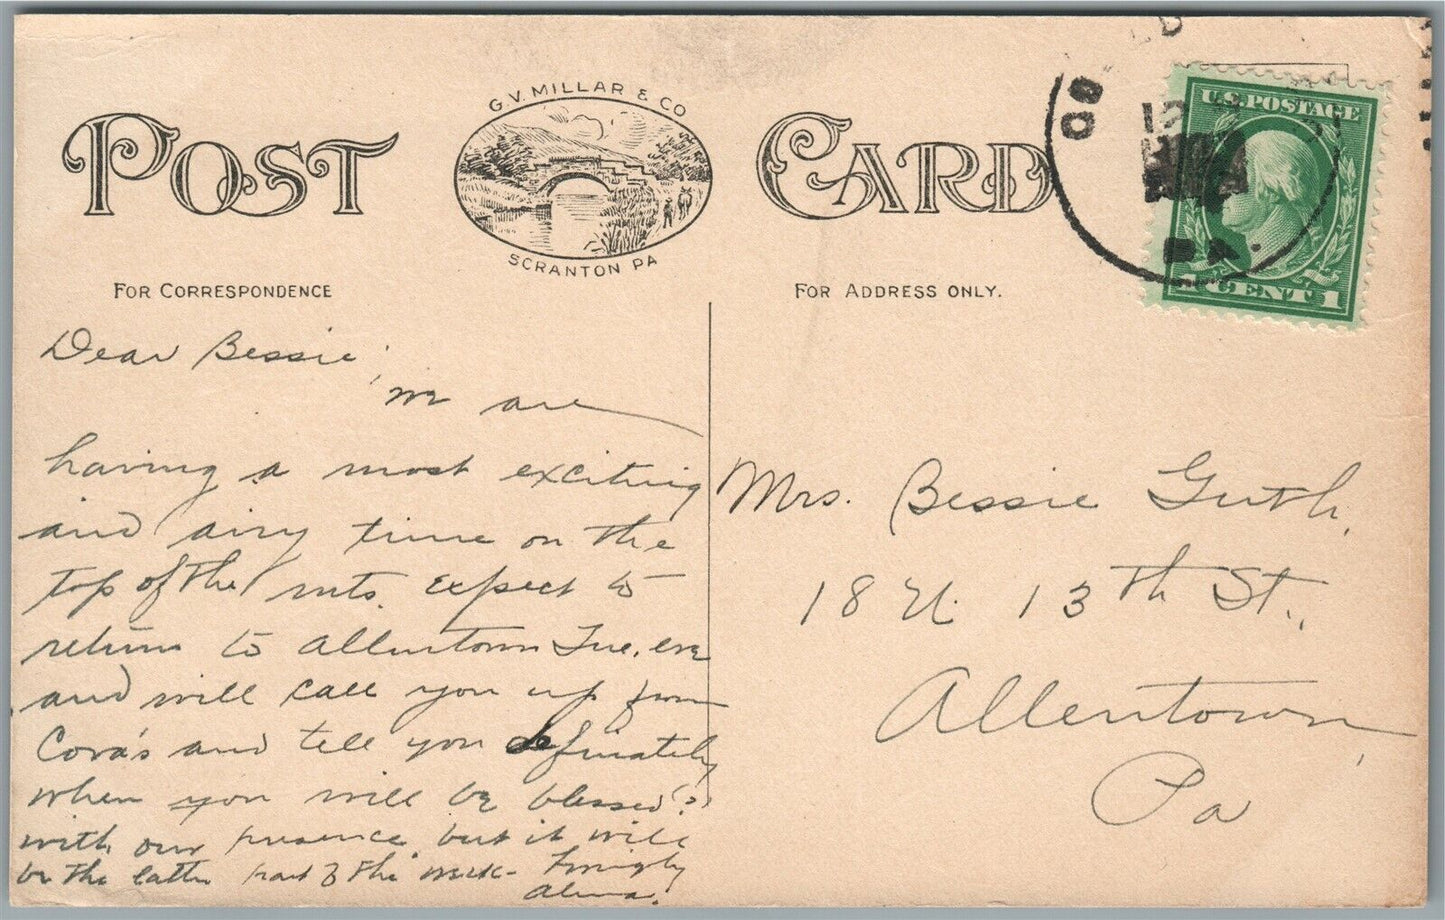 POST CARD
G. V. MILLAR & CO
SCRANTON PA
FOR CORRESPONDENCE
FOR ADDRESS ONLY.
U.S. POSTAGE
1 CENT 1
PA.
Dear Bessie,
We are
having a most exciting
and airy time on the
top of the mts. expect to
return to Allentown Tue. eve
and will call you up from
Cora's and tell you definately
when you will be blessed(?)
with our presence but it will
be the latter part of the week- Lovingly
Alma.
Mrs. Bessie Guth.
18 N. 13th St.,
Allentown,
Pa